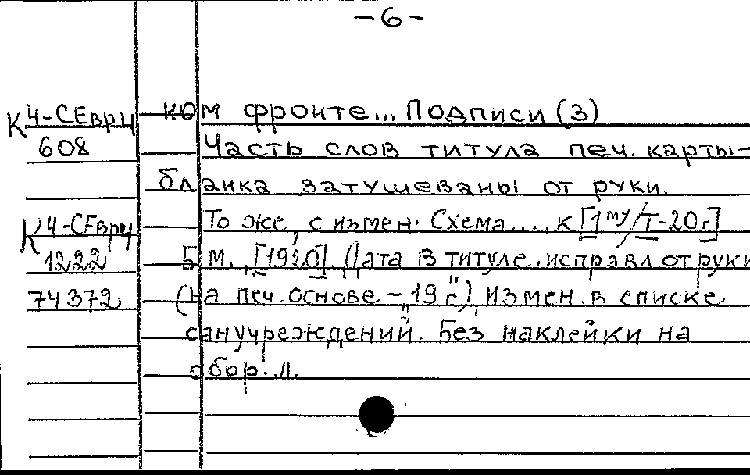 -6-
К 4-СЕвРЦ ком фронте... Подписи (3)
608 Часть слов титула печ. карты-
бланка затушеваны от руки.
К 4-СЕвРЦ То же, с измен. Схема.... к [1 му/Т-20г]
1222 Б.м., [1920] Дата в титуле исправл от руки
74372 (на печ. основе - „19" г.) Измен. в списке
санучреждений. Без наклейки на
обор. л.